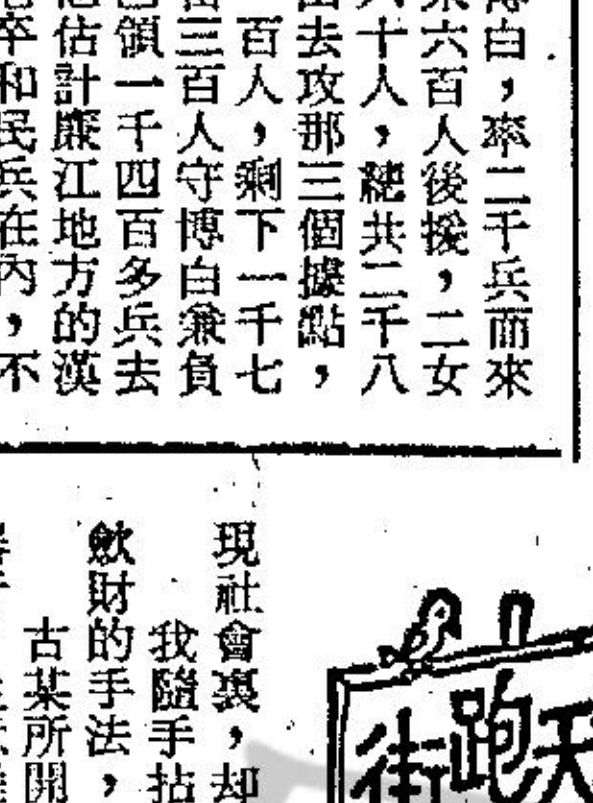 博白，率二千兵而來
來六百人後援，二女
六十人，總共二千八
出去攻那三個據點，
百人，剩下一千七
三百人守博白兼負
領一千四百多兵去
估計廉江地方的漢
卒和民兵在內，不
天跑街
現社會裏，却
我隨手拈
斂財的手法，
古某所開